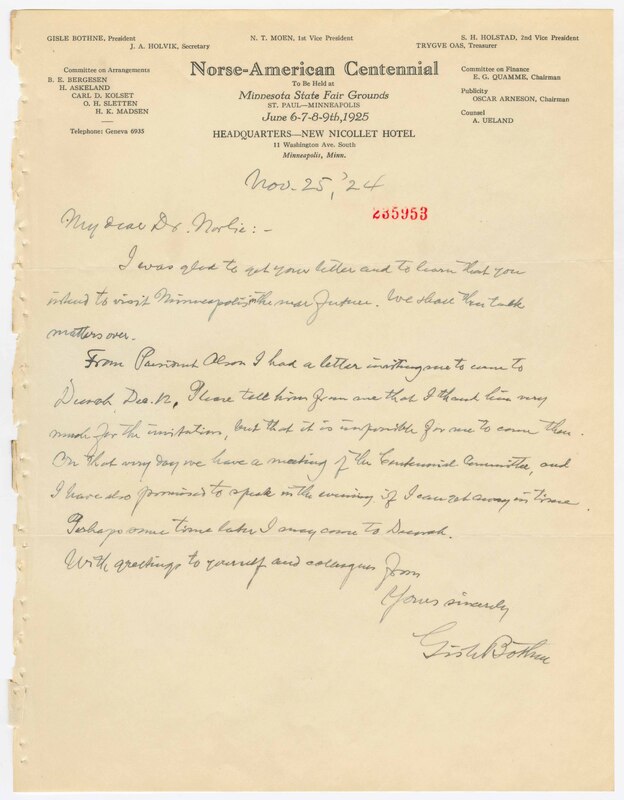 GISLE BOTHNE, President
J. A. HOLVIK, Secretary
N. T. MOEN, 1st Vice President
S. H. HOLSTAD, 2nd Vice President
TRYGVE OAS, Treasurer
Committee on Arrangements
B. E. BERGESEN
H. ASKELAND
CARL D. KOLSET
O. H. SLETTEN
H. K. MADSEN
Telephone: Geneva 6935
Norse-American Centennial
To Be Held at
Minnesota State Fair Grounds
ST. PAUL—MINNEAPOLIS
June 6-7-8-9th, 1925
HEADQUARTERS—NEW NICOLLET HOTEL
11 Washington Ave. South
Minneapolis, Minn.
Committee on Finance
E. G. QUAMME, Chairman
Publicity
OSCAR ARNESON, Chairman
Counsel
A. UELAND
Nov. 25, '24
235953
My dear Dr. Norlie:-
I was glad to get your letter and to learn that you
intend to visit Minneapolis in the near future. We shall then talk
matters over.
From President Olson I had a letter inviting me to come to
Decorah, Dec. 12. Please tell him from me that I thank him very
much for the invitation, but that it is impossible for me to come then.
On that very day we have a meeting of the Centennial Committee, and
I have also promised to speak in the evening if I can get away in time.
Perhaps some time later I may come to Decorah.
With greetings to yourself and colleagues from
Yours sincerely
Gisle Bothne